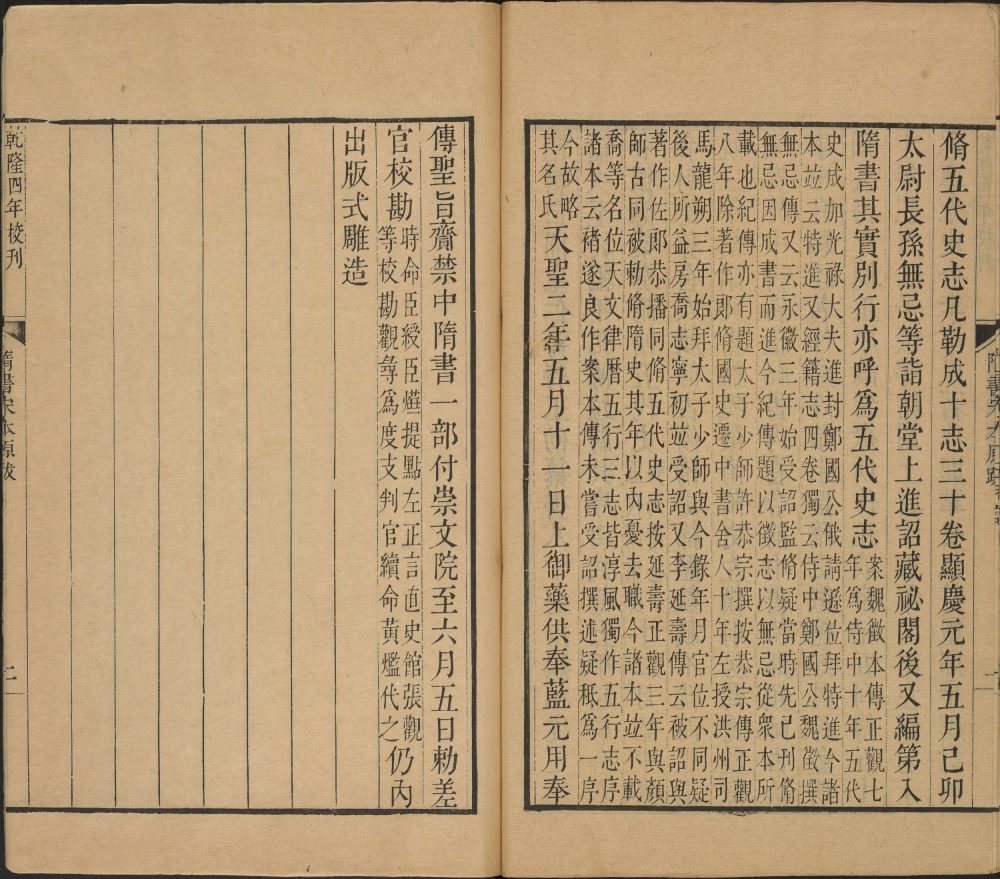 脩五代史志凡勒成十志三十卷顯慶元年五月己卯
太尉長孫無忌等詣朝堂上進詔藏祕閣後又編第入
隋書其實別行亦呼爲五代史志
案魏徵本傳正觀七
年爲侍中十年五代
史成加光祿大夫進封鄭國公俄請遜位拜特進今諸
本竝云特進又經籍志四卷獨云侍中鄭國公魏徵撰
無忌傳又云永徽三年始受詔監脩疑當時先已刊脩
無忌因成書而進今紀傳題以徵志以無忌從衆本所
載也紀傳亦有題太子少師許恭宗撰按恭宗傳正觀
八年除著作郎脩國史遷中書舍人十年左授洪州司
馬龍朔三年始拜太子少師與今錄年月官位不同疑
後人所益房喬志寧初竝受詔又李延壽傳云被詔與
著作佐郎恭播同脩五代史志按延壽正觀三年與顏
師古同被勅脩隋史其年以內憂去職今諸本竝不載
喬等名位天文律曆五行三志皆淳風獨作五行志序
諸本云褚遂良作案本傳未嘗受詔撰述疑秪爲一序
今故略
其名氏
天聖二年五月十一日上御藥供奉藍元用奉
傳聖旨齎禁中隋書一部付崇文院至六月五日勅差
官校勘
時命臣綬臣燁提點左正言直史館張觀
等校勘觀尋爲度支判官續命黃鑑代之
仍內
出版式雕造
乾隆四年校刊
隋書宋本原跋
二